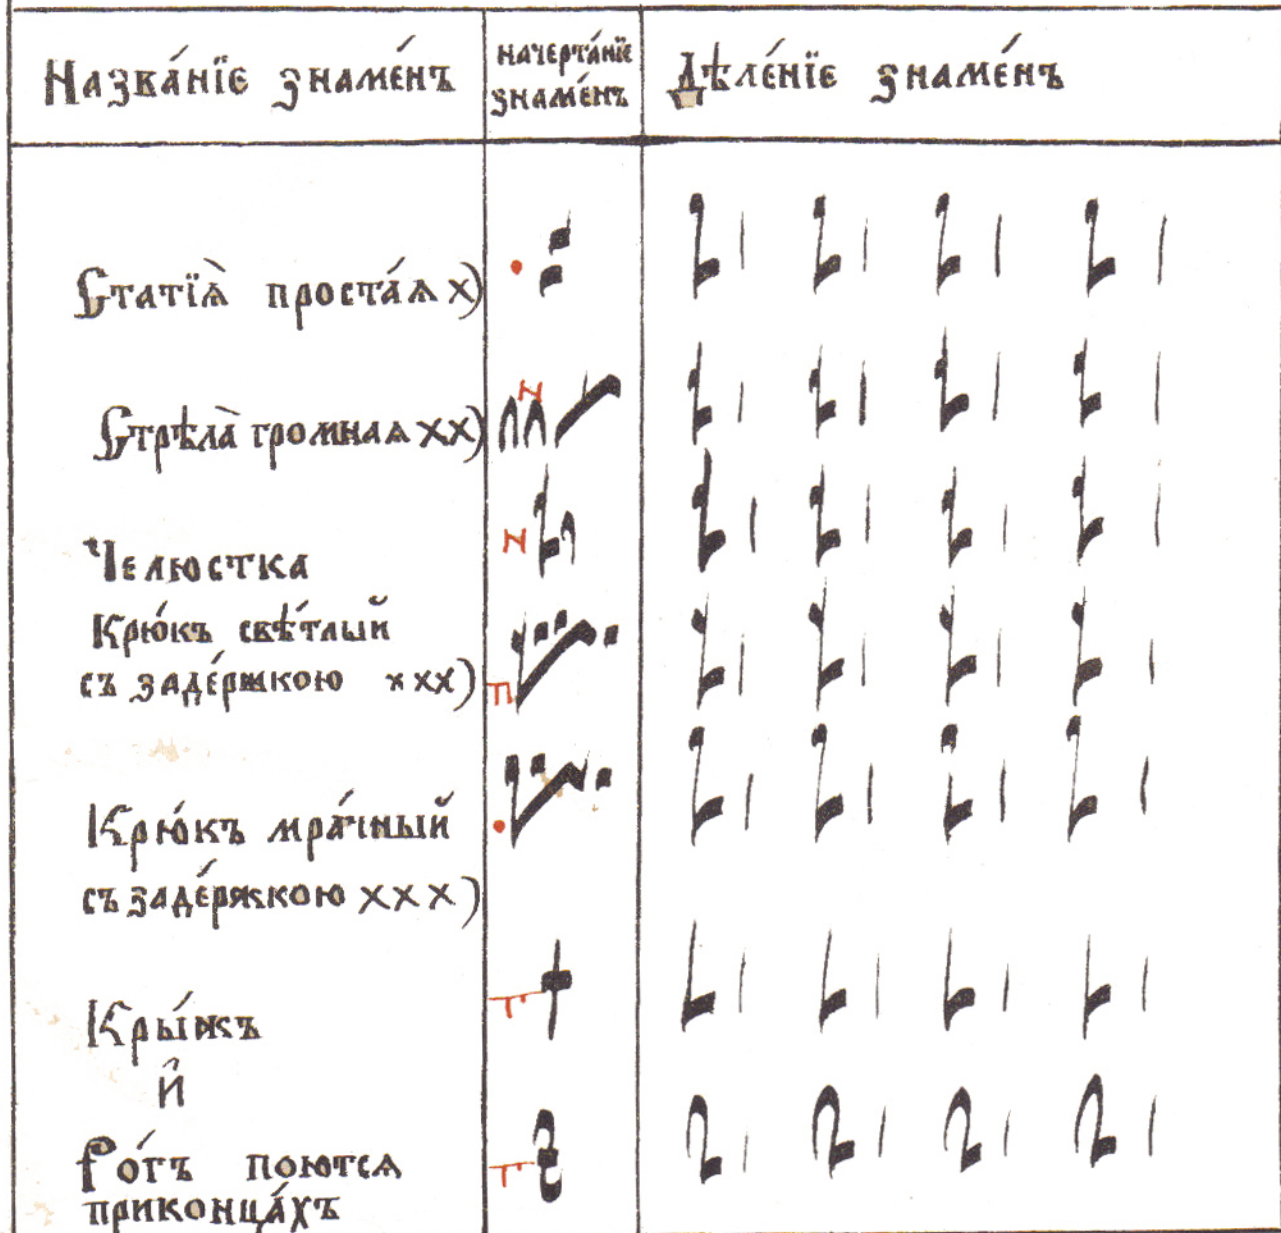 Назва́нїе знаме́нъ
начерта́нїе
знаме́нъ
Дѣле́нїе знаме́нъ
Статїѧ̀ проста́ѧ х)
Стрѣла̀ громнаѧ хх)
Челюстка
Крю́къ свѣ́тлый
съ заде́ржкою ххх)
Крю́къ мра́чный
съ заде́ржкою ххх)
Кры́жъ
И҆̂
Ро́гъ поютсѧ
приконца́хъ